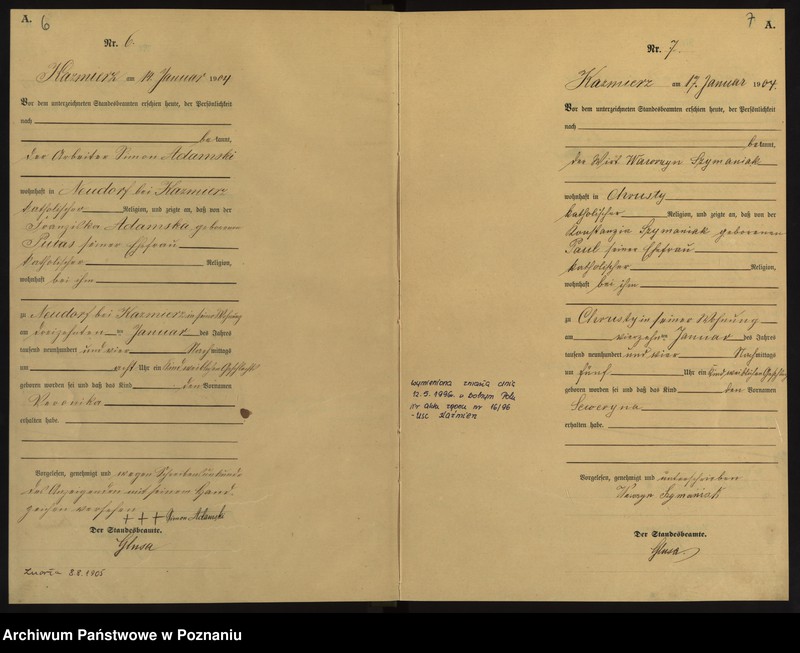 A.
6
Nr. 6.
Kazmierz am 14 Januar 1904
Vor dem unterzeichneten Standesbeamten erschien heute, der Persönlichkeit
nach
be kannt,
der Arbeiter Simon Adamski
wohnhaft in Neudorf bei Kazmierz
katholischer Religion, und zeigte an, daß von der
Franziska Adamska geborenen
seiner Ehefrau
katholischer Religion,
wohnhaft bei ihm
zu Neudorf bei Kazmierz in seiner Wohnung
am dreizehnten ten Januar des Jahres
tausend neunhundert und vier Nach mittags
um acht Uhr ein Kind weiblichen Geschlechts
geboren worden sei und daß das Kind den Vornamen
Veronika
erhalten habe.
Vorgelesen, genehmigt und wegen Schreibensunkunde
des Anzeigenden mit seinem Hand-
zeichen versehen
+ + + Simon Adamski
Der Standesbeamte.
Glusa
8.8.1905
7
A.
Nr. 7.
Kazmierz am 17. Januar 1904.
Vor dem unterzeichneten Standesbeamten erschien heute, der Persönlichkeit
nach
be kannt,
der Wirt Wawrzyn Szymaniak
wohnhaft in Chrusty
katholischer Religion, und zeigte an, daß von der
Konstanzia Szymaniak geborenen
Paul seiner Ehefrau
katholischer Religion,
wohnhaft bei ihm
zu Chrusty in seiner Wohnung
am vierzehn ten Januar des Jahres
tausend neunhundert und vier Nach mittags
um fünf Uhr ein Kind weiblichen Geschlechts
geboren worden sei und daß das Kind den Vornamen
Seweryna
erhalten habe.
Vorgelesen, genehmigt und unterschrieben
Szymaniak
Der Standesbeamte.
Glusa
wymieniona zmarła dnia
12.5.1996
nr aktu zgonu nr 16/96
- USC Kaźmierz
Archiwum Państwowe w Poznaniu